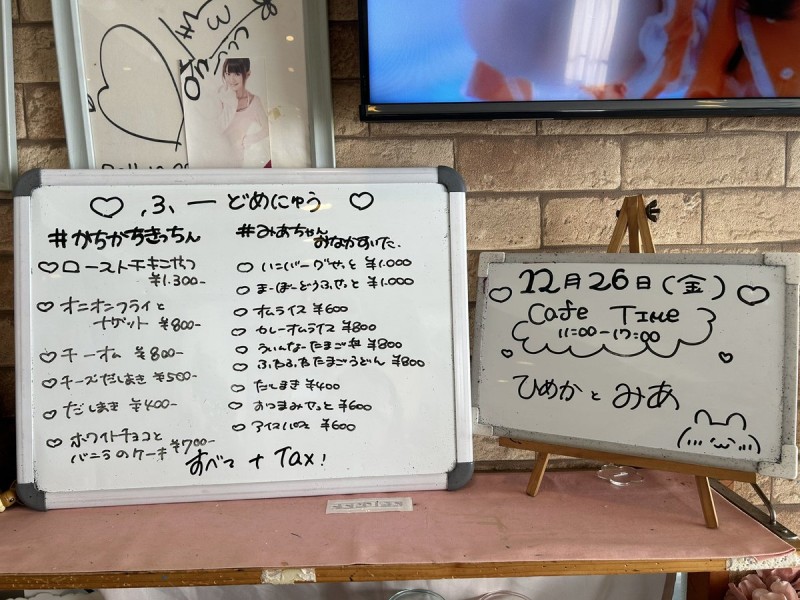 ♡ ,3, ー どめにゅう ♡
#がちがちきっちん
♡ローストチキンやつ
¥1.300-
♡オニオンフライと
ナゲット ¥800-
♡チーオム ¥800-
♡チーズだしまき ¥500-
♡だしまき ¥400-
♡ホワイトチョコと
バニラのケーキ ¥700-
#みあちゃん
おなかすいた、
♡ ¥1.000
♡まーぼーどうふせっと ¥1.000
♡オムライス ¥600
♡カレーオムライス ¥800
♡ういんなーたまご ¥800
♡たまごうどん ¥800
♡だしまき ¥400
♡おつまみせっと ¥600
♡アイス ¥600
すべて + Tax!
12月26日(金)
Cafe TIMe
11:00-17:00
ひめか と みあ